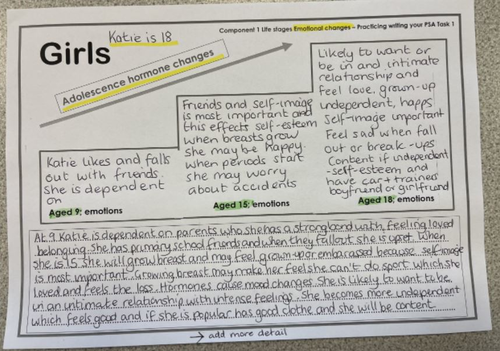 Component 1 Life stages Emotional changes – Practicing writing your PSA Task 1
Katie is 18
Girls
Adolescence hormone changes
Katie likes and falls
out with friends.
She is dependent
on
Aged 9: emotions
Friends and self-image
is most important and
this effects self-esteem
when breasts grow
she may be happy.
when periods start
she may worry
about accidents
Aged 15: emotions
Likely to want or
be in and intimate
relationship and
feel love, grown-up
independent, happy
Self-image important
Feel sad when fall
out or break-ups
Content if independent
-self-esteem and
have car + trainers
boyfriend or girlfriend
Aged 18: emotions
At 9 Katie is dependent on parents who she has a strong bond with, feeling loved
belonging. She has primary school friends and when they fallout she is upset. When
she is 15 she will grow breast and may feel grown-up or embarassed because self-image
is most important. Growing breast may make her feel she can't do sport which she
loved and feels the loss. Hormones cause mood changes. She is likely to want to be
in an untimate relationship with intense feelings. She becomes more independent
which feels good and if she is popular has good clothe and she will be content.
→ add more detail